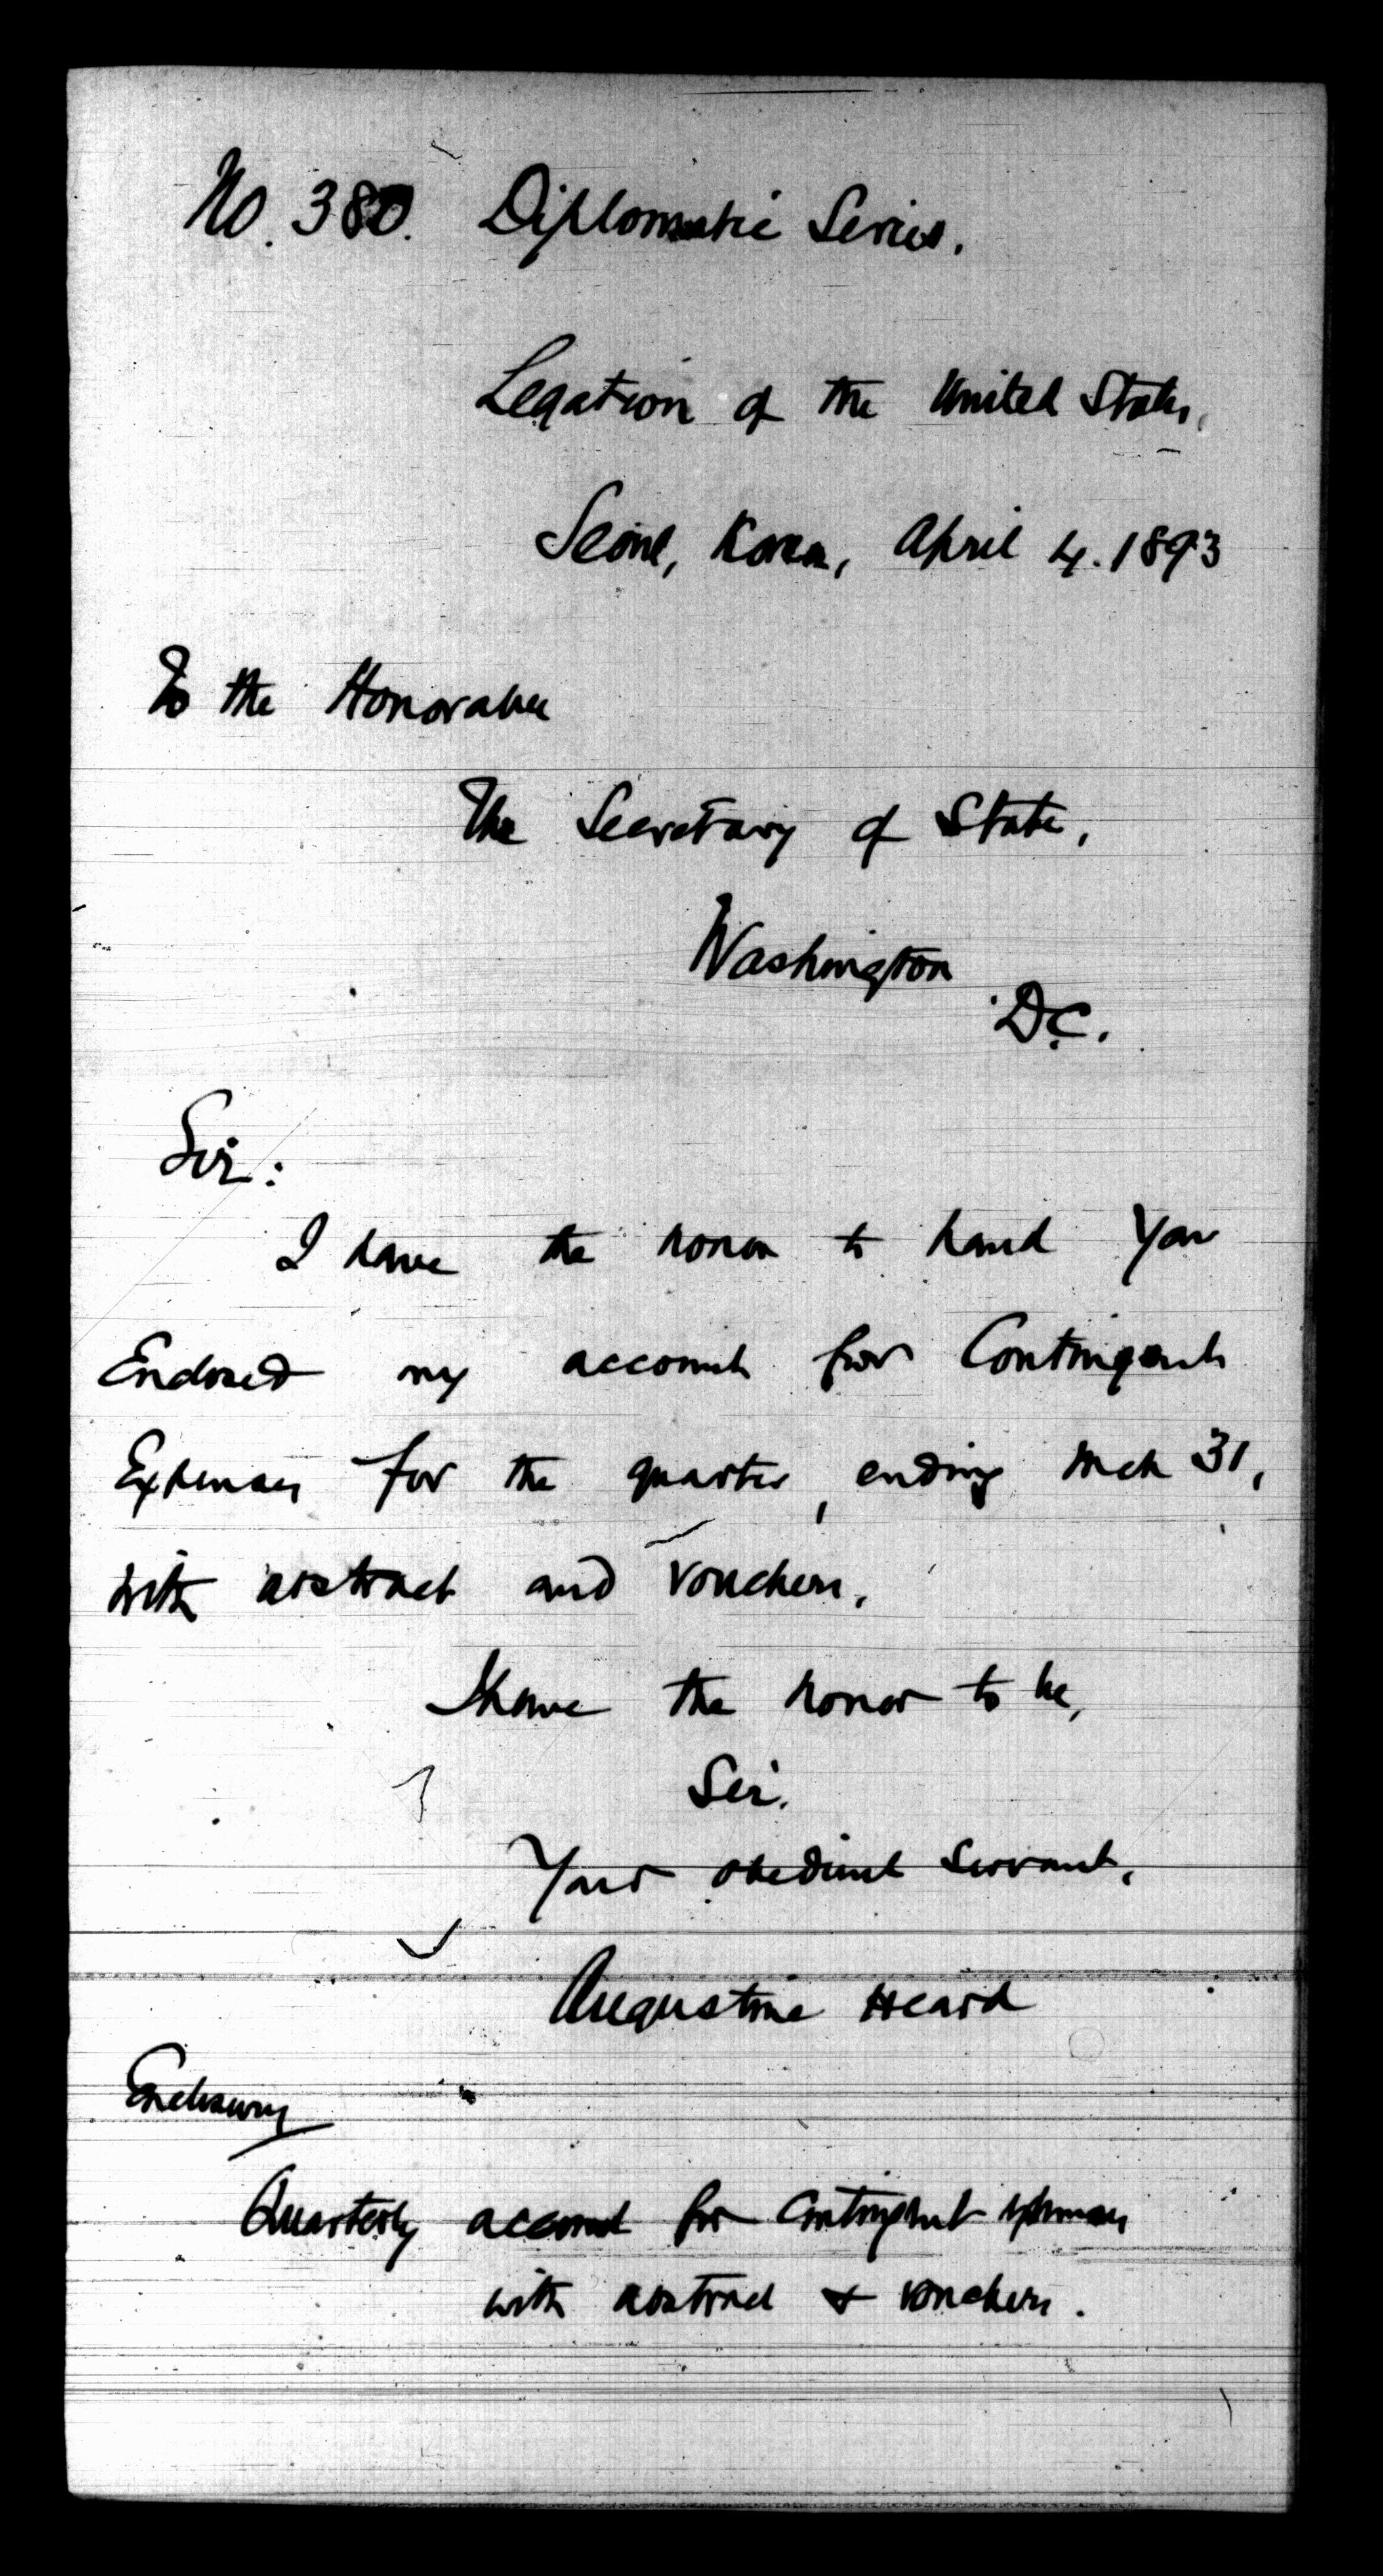 No. 380. Diplomatic Series.
Legation of the United States,
Seoul, Korea, April 4. 1893
To the Honorable
The Secretary of State,
Washington
D.C.
Sir:
I have the honor to hand you
Enclosed my account for Contingent
Expenses for the quarter, ending Mch 31,
with abstract and vouchers.
I have the honor to be,
Sir.
Your obedient servant,
Augustine Heard
Enclosures
Quarterly account for Contingent expenses
with abstract & vouchers.